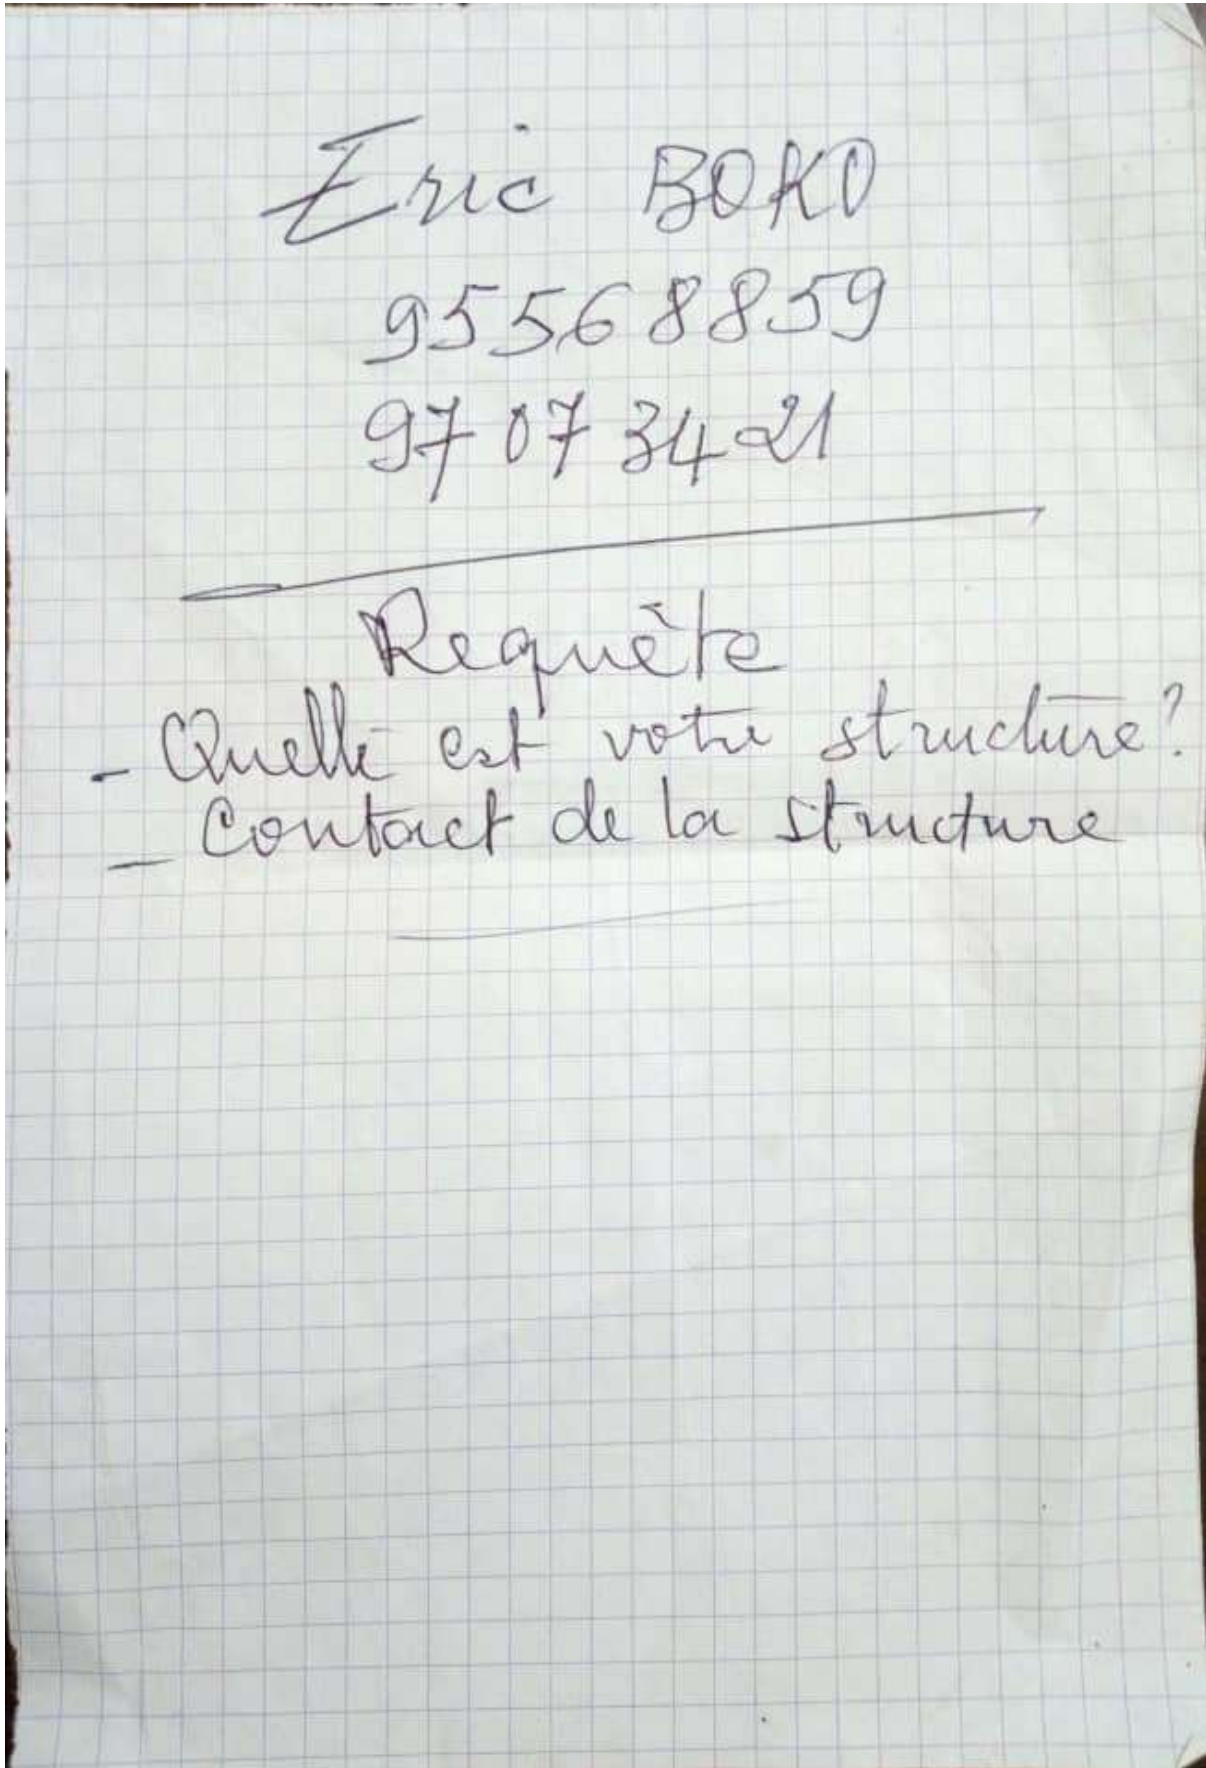 Eric BOKO
95568859
97 07 34 21
Requête
- Quelle est votre structure?
- Contact de la structure